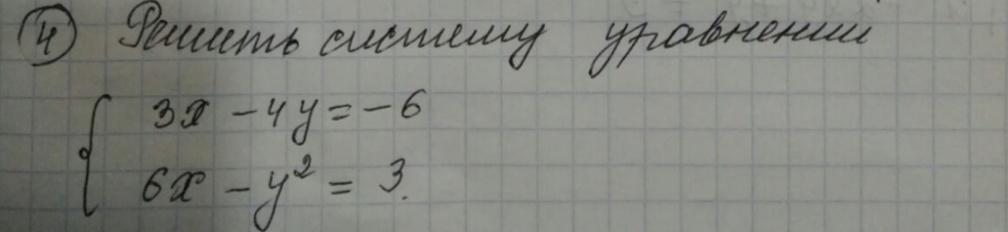 4 Решить систему уравнений
3x - 4y = -6
6x - y² = 3.